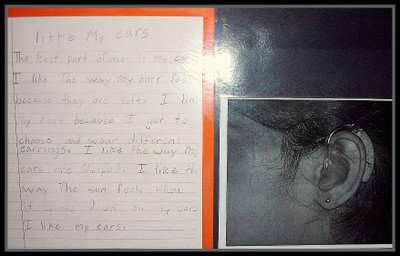 I like My ears
The best part of me is my ears
I like the way my ears feel
because they are soft. I like
my ears because I get to
choose and wear different
earrings. I like the way my
ears are shaped. I like the
way The son feels when
it shines down on my ears
I like my ears.